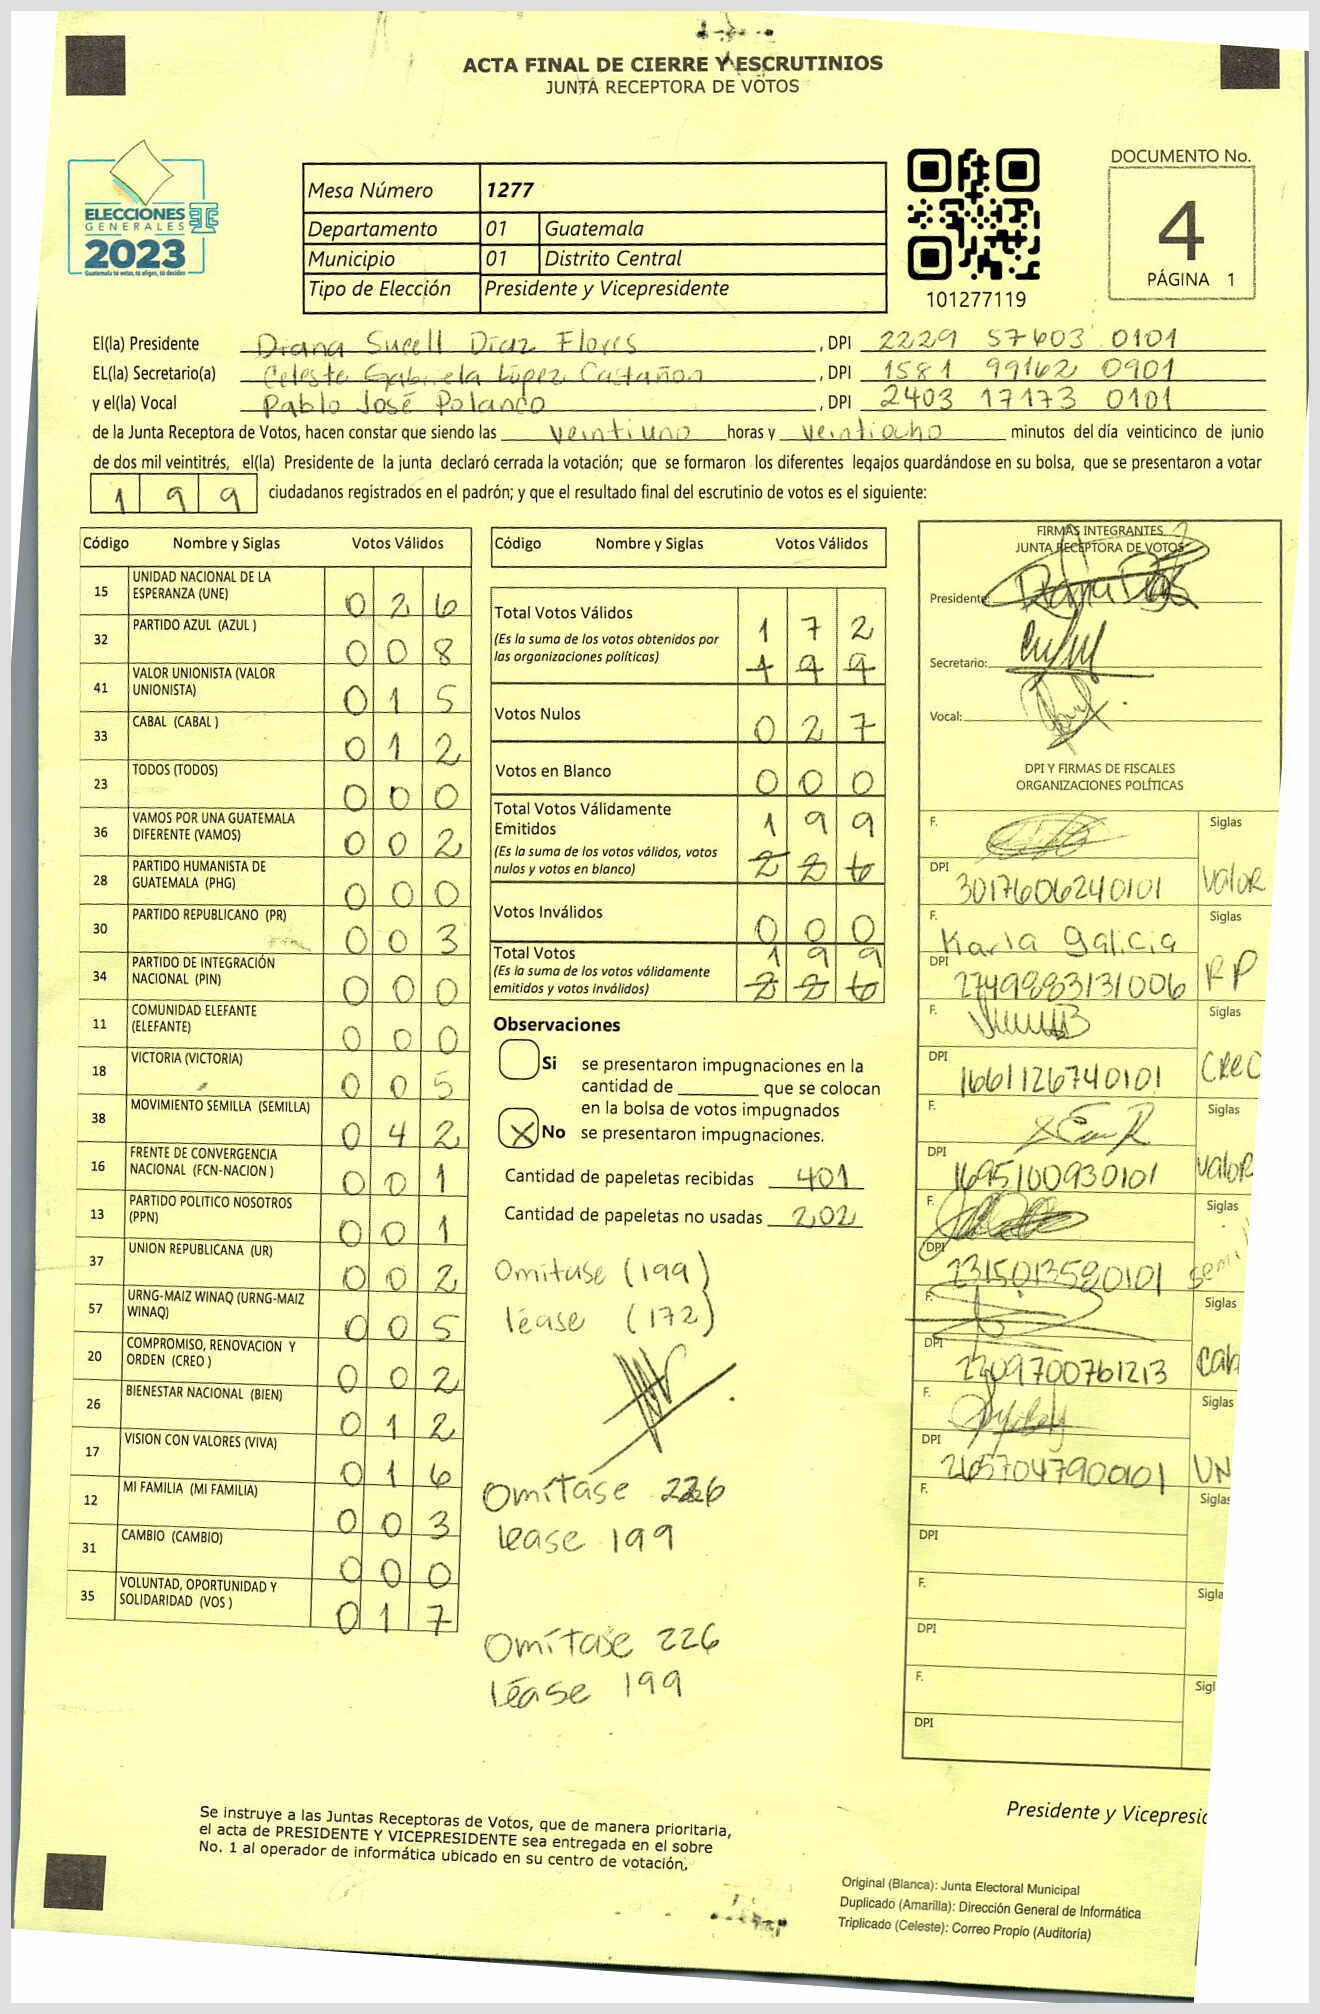 ACTA FINAL DE CIERRE Y ESCRUTINIOS
JUNTA RECEPTORA DE VOTOS
ELECCIONES
GENERALES
2023
Guatemala tú votas, tú eliges, tú decides
Mesa Número 1277
Departamento 01 Guatemala
Municipio 01 Distrito Central
Tipo de Elección Presidente y Vicepresidente
101277119
DOCUMENTO No.
4
PÁGINA 1
El(la) Presidente Diana Sucell Díaz Flores, DPI 2229 57603 0101
EL(la) Secretario(a) Celeste Gabriela López Castañon, DPI 1581 99162 0901
y el(la) Vocal Pablo José Polanco, DPI 2403 17173 0101
de la Junta Receptora de Votos, hacen constar que siendo las veintiuno horas y veintiocho minutos del día veinticinco de junio
de dos mil veintitrés, el(la) Presidente de la junta declaró cerrada la votación; que se formaron los diferentes legajos guardándose en su bolsa, que se presentaron a votar
199 ciudadanos registrados en el padrón; y que el resultado final del escrutinio de votos es el siguiente:
Código Nombre y Siglas Votos Válidos
15 UNIDAD NACIONAL DE LA ESPERANZA (UNE) 026
32 PARTIDO AZUL (AZUL ) 008
41 VALOR UNIONISTA (VALOR UNIONISTA) 015
33 CABAL (CABAL ) 012
23 TODOS (TODOS) 000
36 VAMOS POR UNA GUATEMALA DIFERENTE (VAMOS) 002
28 PARTIDO HUMANISTA DE GUATEMALA (PHG) 000
30 PARTIDO REPUBLICANO (PR) 003
34 PARTIDO DE INTEGRACIÓN NACIONAL (PIN) 000
11 COMUNIDAD ELEFANTE (ELEFANTE) 000
18 VICTORIA (VICTORIA) 005
38 MOVIMIENTO SEMILLA (SEMILLA) 042
16 FRENTE DE CONVERGENCIA NACIONAL (FCN-NACION ) 001
13 PARTIDO POLITICO NOSOTROS (PPN) 001
37 UNION REPUBLICANA (UR) 002
57 URNG-MAIZ WINAQ (URNG-MAIZ WINAQ) 005
20 COMPROMISO, RENOVACION Y ORDEN (CREO ) 002
26 BIENESTAR NACIONAL (BIEN) 012
17 VISION CON VALORES (VIVA) 016
12 MI FAMILIA (MI FAMILIA) 003
31 CAMBIO (CAMBIO) 000
35 VOLUNTAD, OPORTUNIDAD Y SOLIDARIDAD (VOS ) 017
Código Nombre y Siglas Votos Válidos
Total Votos Válidos 172
(Es la suma de los votos obtenidos por
las organizaciones políticas) 199
Votos Nulos 027
Votos en Blanco 000
Total Votos Válidamente
Emitidos 199
(Es la suma de los votos válidos, votos
nulos y votos en blanco) 226
Votos Inválidos 000
Total Votos 199
(Es la suma de los votos válidamente
emitidos y votos inválidos) 226
Observaciones
Si se presentaron impugnaciones en la
cantidad de ________ que se colocan
en la bolsa de votos impugnados
X No se presentaron impugnaciones.
Cantidad de papeletas recibidas 401
Cantidad de papeletas no usadas 202
Omitase (199)
léase (172)
Omítase 226
lease 199
Omítase 226
léase 199
FIRMAS INTEGRANTES
JUNTA RECEPTORA DE VOTOS
Presidente:
Secretario:
Vocal:
DPI Y FIRMAS DE FISCALES
ORGANIZACIONES POLÍTICAS
F. Siglas
DPI 3017606240101 Valor
F. Karla Galicia Siglas
DPI 2749883131006 RP
F. Siglas
DPI 1661126740101 CREO
F. Siglas
DPI 1695100930101 Valor
F. Siglas
DPI 2315013580101 semi
F. Siglas
DPI 2209700761213 Cab
F. Siglas
DPI 2657047900101 UN
F. Siglas
DPI
F. Sigla
DPI
F. Sigl
DPI
Se instruye a las Juntas Receptoras de Votos, que de manera prioritaria,
el acta de PRESIDENTE Y VICEPRESIDENTE sea entregada en el sobre
No. 1 al operador de informática ubicado en su centro de votación.
Presidente y Vicepresid
Original (Blanca): Junta Electoral Municipal
Duplicado (Amarilla): Dirección General de Informática
Triplicado (Celeste): Correo Propio (Auditoría)